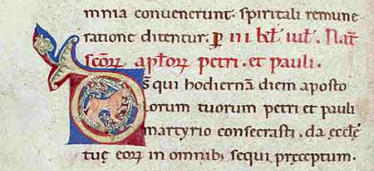 mnia convenerunt. spiritali remune
ratione ditentur. P III kl iul. Nat
scõrꝝ aptorꝝ petri. et pauli.
DS qui hodiernã diem aposto
lorum tuorum petri et pauli
martyrio consecrasti. da eccłe
tuę eorꝝ in omnibꝫ sequi pręceptum.